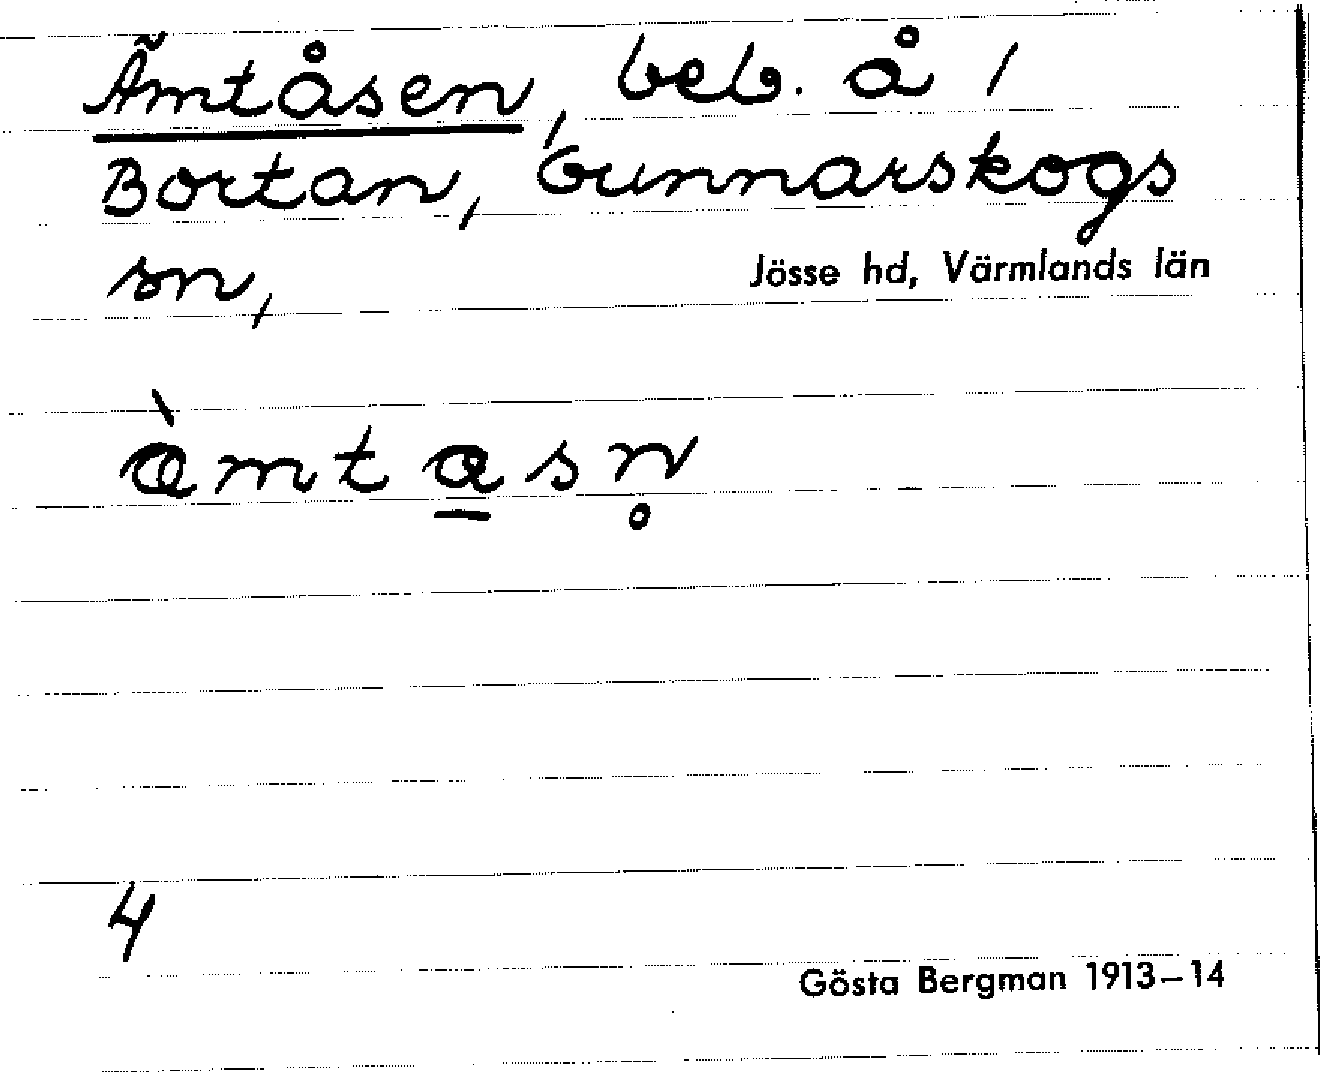 Ämtåsen, beb. å /
Bortan, Gunnarskogs
sn,
Jösse hd, Värmlands län
àmtasn̥
4
Gösta Bergman 1913–14